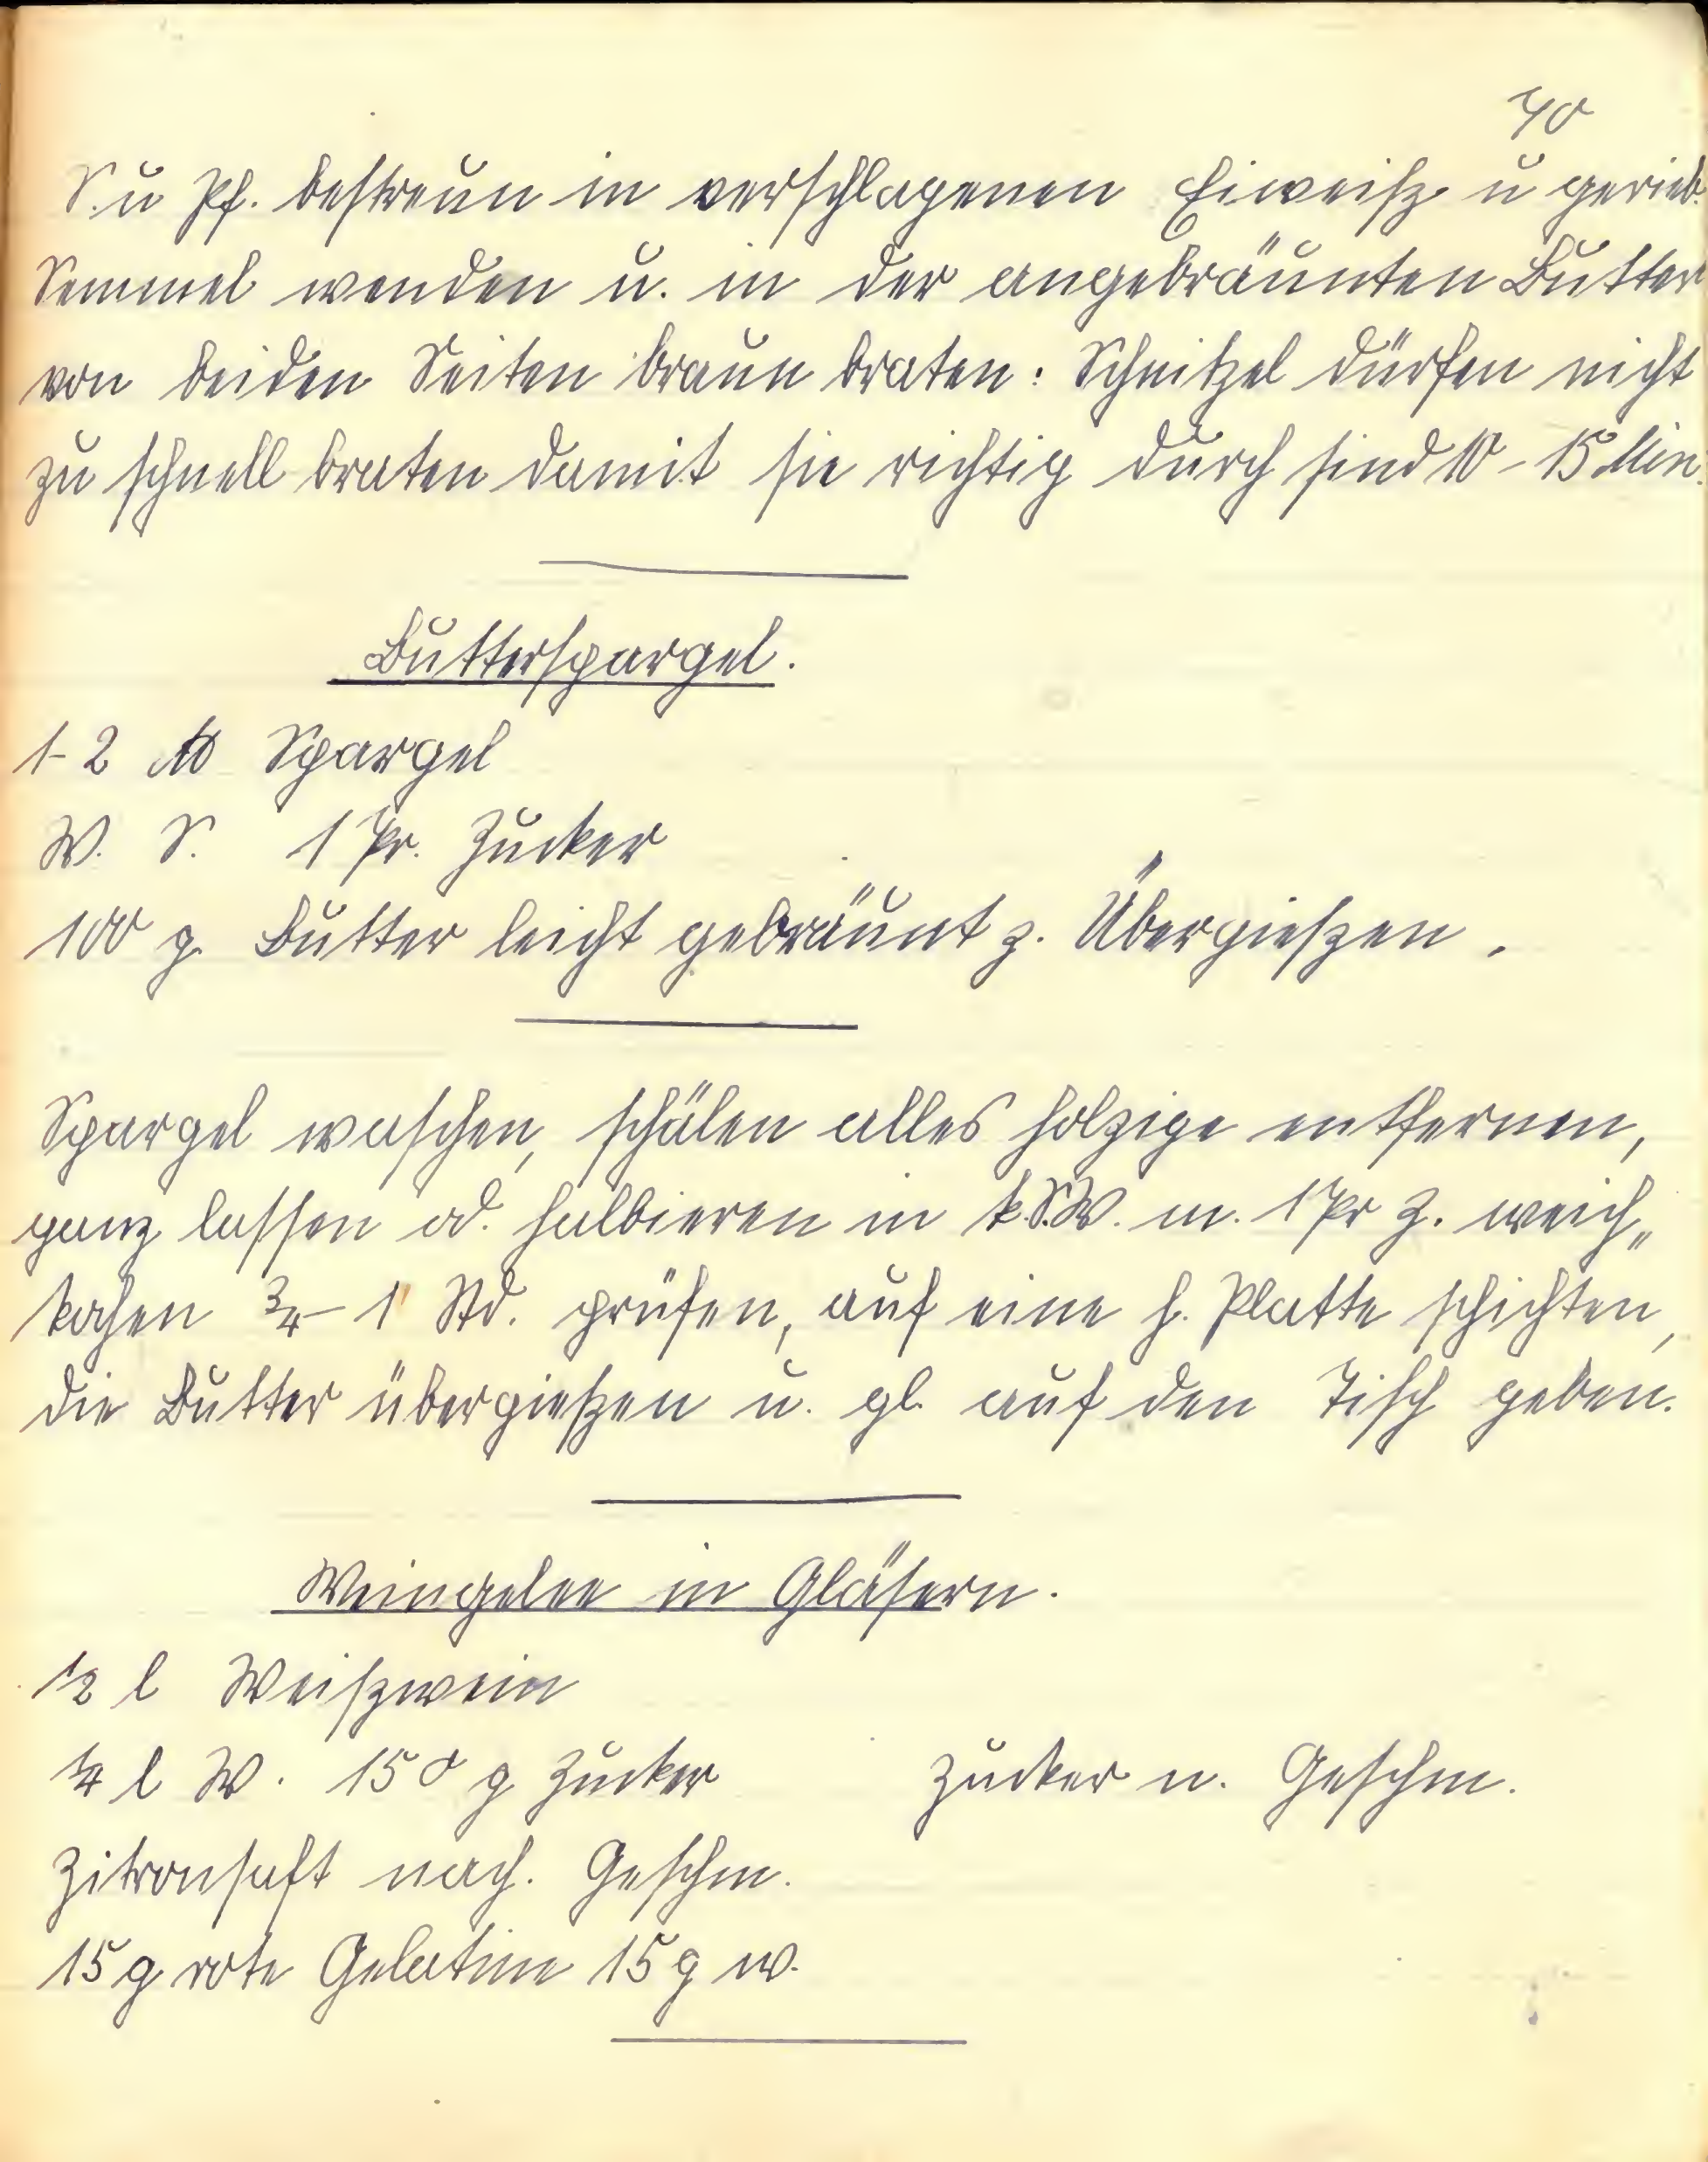 40
S. u Pf. bestreun in verschlagenen Eiweiß u gerieb.
Semmel wenden u. in der angebräunten Butter
von beiden Seiten braun braten: Schnitzel dürfen nicht
zu schnell braten damit sie richtig durch sind 10-15 Min.
Butterspargel.
1-2 ℔ Spargel
W. S. 1 Pr. Zucker
100 g Butter leicht gebräunt z. Übergießen.
Spargel waschen, schälen alles holzige entfernen,
ganz lassen od. halbieren in k.S.W. m. 1 Pr Z. weich„
kochen ¾-1 Std. prüfen, auf eine h. Platte schichten,
die Butter übergießen u. gl. auf den Tisch geben.
Weingelee in Gläsern.
½ l Weißwein
¼ l W. 150 g Zucker Zucker n. Geschm.
Zitronsaft nach. Geschm.
15 g rote Gelatine 15 g w.